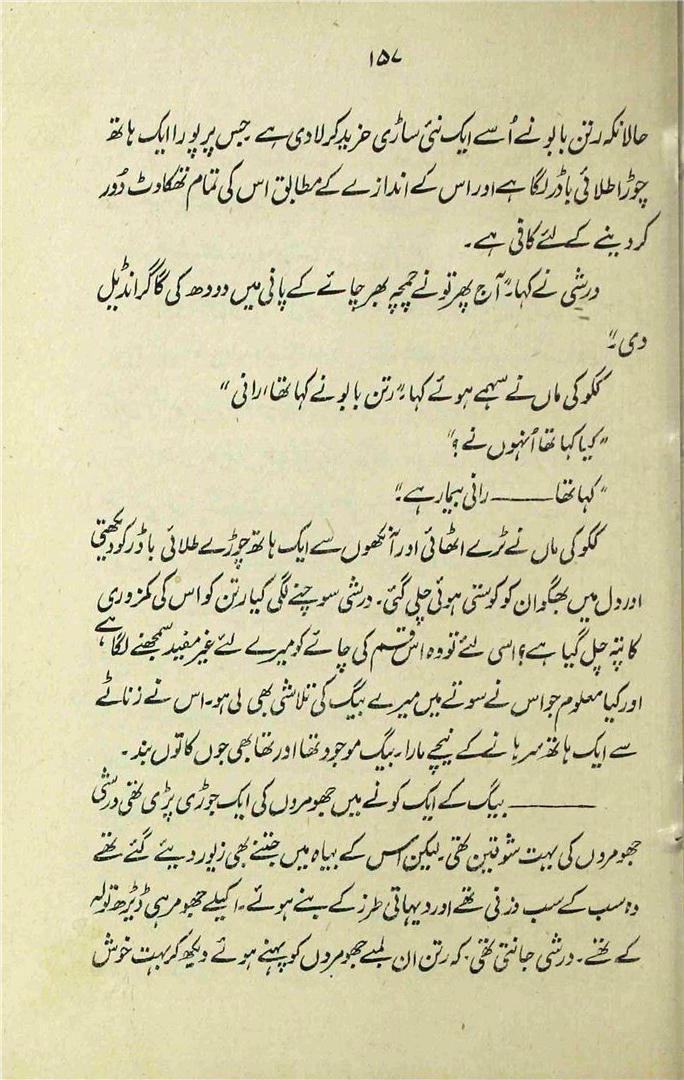 ۱۵۷
حالانکہ رتن بابو نے اُسے ایک نئی ساڑی خرید کر لا دی ہے جس پر پورا ایک ہاتھ
چوڑا طلائی باڈر لگا ہے اور اس کے اندازے کے مطابق اس کی تمام تھکاوٹ دُور
کر دینے کے لئے کافی ہے۔
درشی نے کہا۔ "آج پھر تو نے چمچہ بھر چائے کے پانی میں دودھ کی گاگر انڈیل
دی۔"
ککو کی ماں نے سہمے ہوئے کہا۔ "رتن بابو نے کہا تھا، رانی"
"کیا کہا تھا اُنہوں نے؟"
"کہا تھا —— رانی بیمار ہے۔"
ککو کی ماں نے ٹرے اٹھائی اور آنکھوں سے ایک ہاتھ چوڑے طلائی باڈر کو دیکھتی
اور دل میں بھگوان کو کوستی ہوئی چلی گئی۔ درشی سوچنے لگی کیا رتن کو اس کی کمزوری
کا پتہ چل گیا ہے؟ اسی لئے تو وہ اس قسم کی چائے کو میرے لئے غیر مفید سمجھنے لگا ہے
اور کیا معلوم جو اس نے سوتے میں میرے بیگ کی تلاشی بھی لی ہو۔ اس نے زناٹے
سے ایک ہاتھ سرہانے کے نیچے مارا۔ بیگ موجود تھا اور تھا بھی جوں کا توں بند۔
—— بیگ کے ایک کونے میں جھومروں کی ایک جوڑی پڑی تھی درشی
جھومروں کی بہت شوقین تھی۔ لیکن اس کے بیاہ میں جتنے بھی زیور دیئے گئے تھے
وہ سب کے سب وزنی تھے اور دیہاتی طرز کے بنے ہوئے۔ اکیلے جھومر ہی ڈیڑھ تولہ
کے تھے۔ درشی جانتی تھی۔ کہ رتن ان لمبے جھومروں کو پہنے ہوئے دیکھ کر بہت خوش